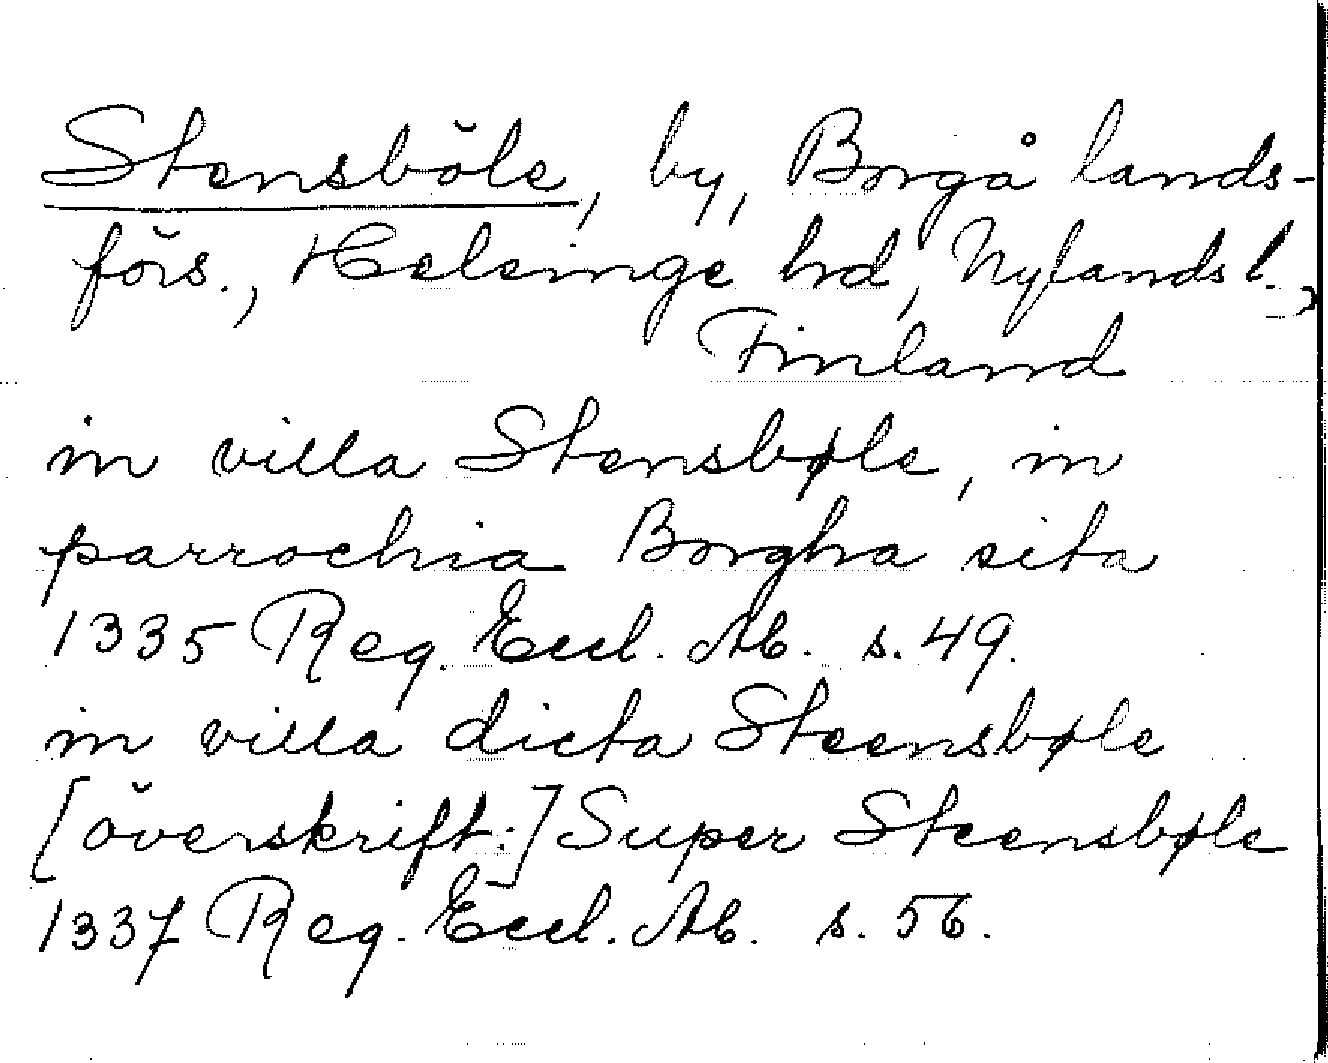 Stensböle, by, Borgå lands-
förs., Helsinge hrd, Nylands l.,
Finland
in villa Stensbøle, in
parrochia Borgha sita
1335 Reg. Eccl. Ab. s. 49.
in villa dicta Steensbøle
[överskrift:] Super Steensbøle
1337 Reg. Eccl. Ab. s. 56.